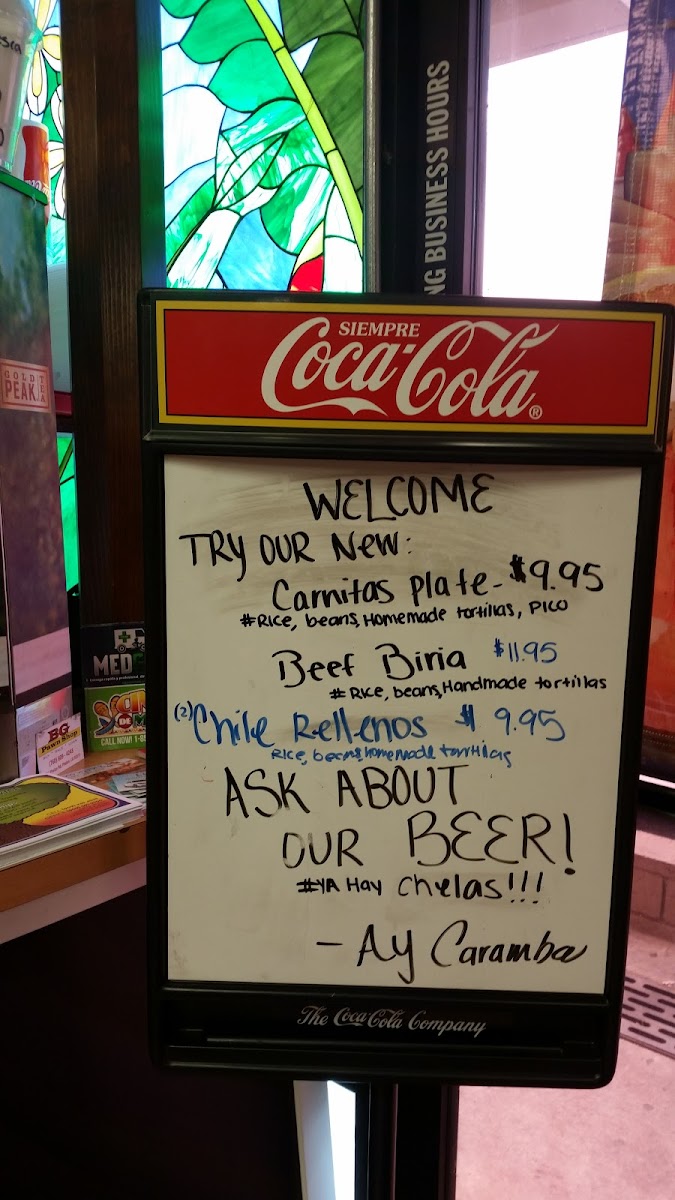 NG BUSINESS HOURS
GOLD PEAK TEA
SIEMPRE
Coca-Cola®
WELCOME
TRY OUR NEW:
Carnitas Plate - $9.95
#Rice, beans, Homemade tortillas, PICO
Beef Biria $11.95
# Rice, beans, Handmade tortillas
(2) Chile Rellenos $ 9.95
Rice, beans, homemade torrtilas
ASK ABOUT
OUR BEER!
#YA Hay Chelas!!!
- Ay Caramba
The Coca-Cola Company
MED
CALL NOW! 1-8
BG
Pawn Shop